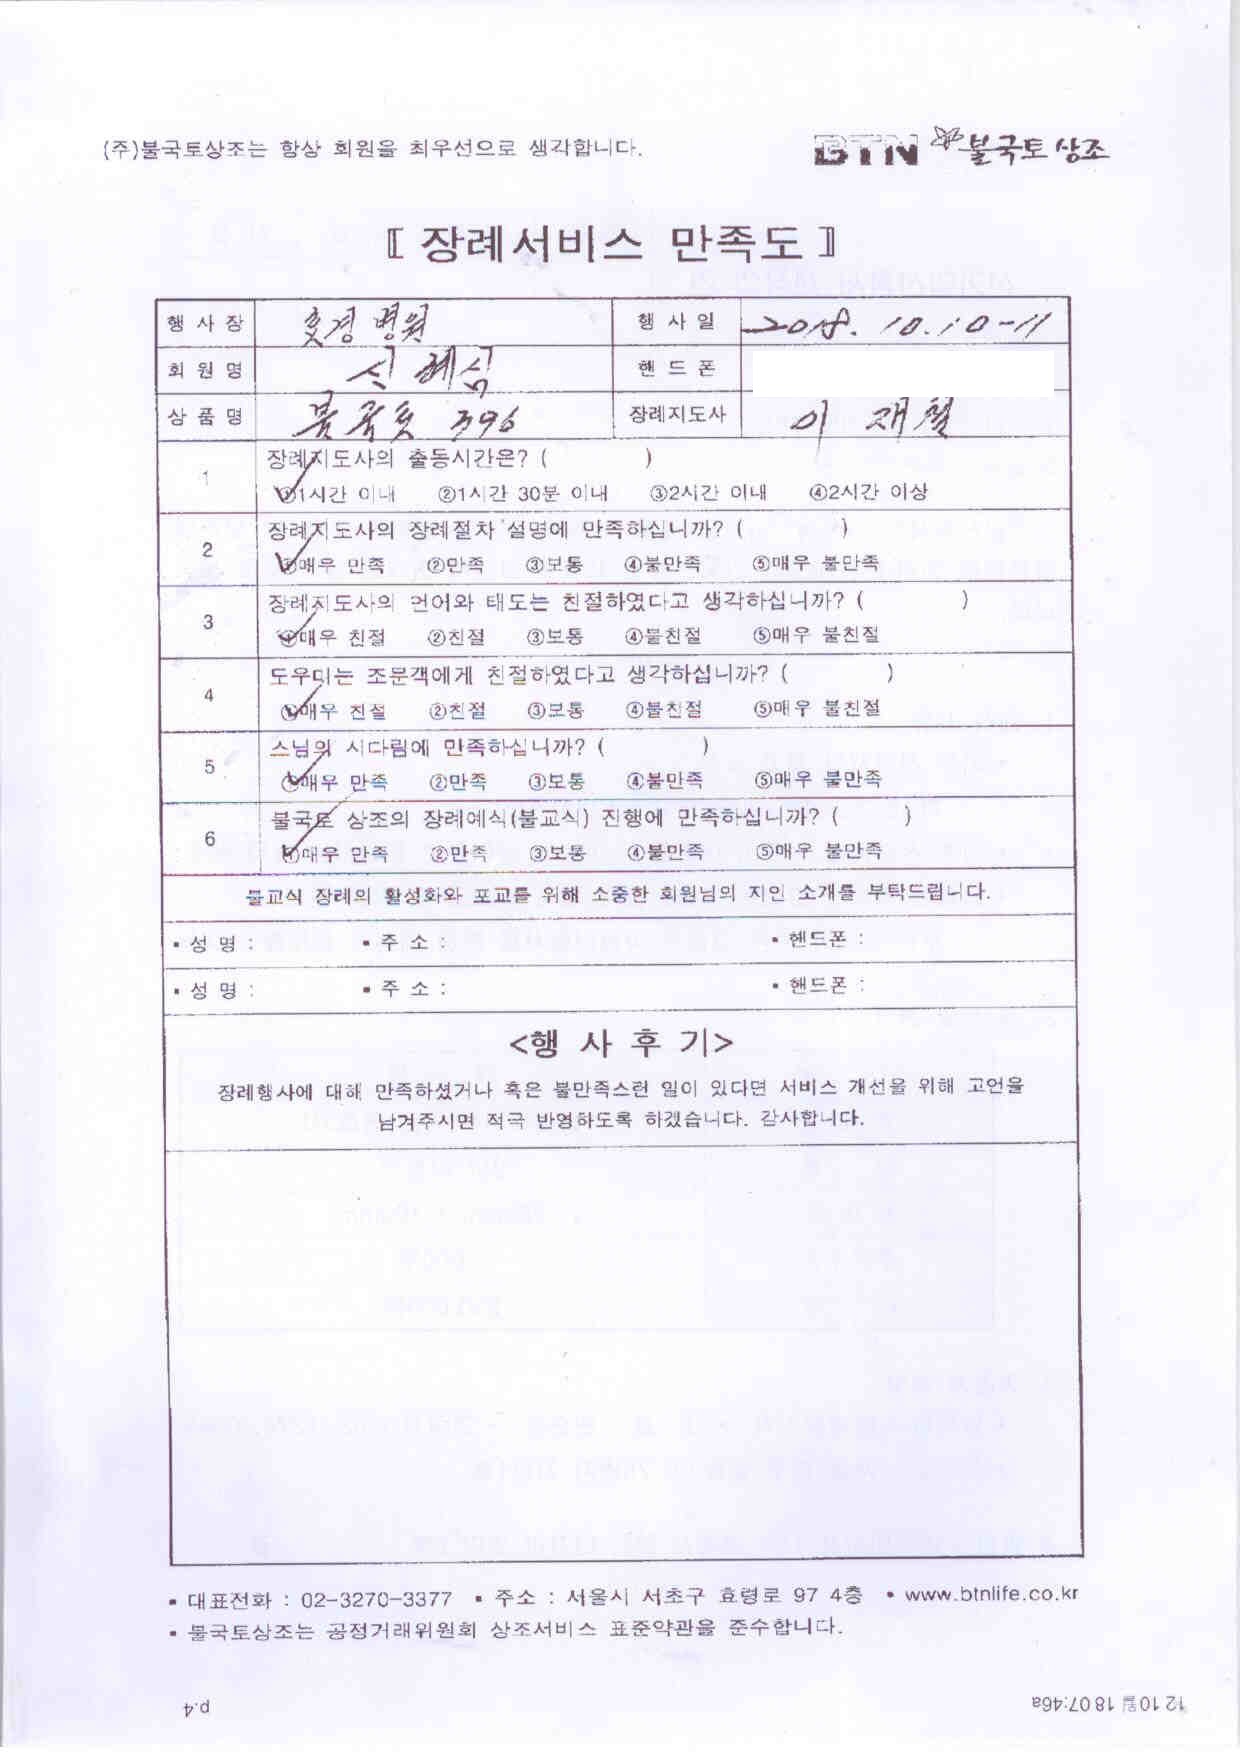 (주)불국토상조는 항상 회원을 최우선으로 생각합니다.
BTN 불국토 상조
〖 장례서비스 만족도 〗
행 사 장 효경 병원 행 사 일 2018. 10. 10-11
회 원 명 신 례심 핸 드 폰
상 품 명 불국토 396 장례지도사 이 재철
1 장례지도사의 출동시간은? ( )
①1시간 이내 ②1시간 30분 이내 ③2시간 이내 ④2시간 이상
2 장례지도사의 장례절차 설명에 만족하십니까? ( )
①매우 만족 ②만족 ③보통 ④불만족 ⑤매우 불만족
3 장례지도사의 언어와 태도는 친절하였다고 생각하십니까? ( )
①매우 친절 ②친절 ③보통 ④불친절 ⑤매우 불친절
4 도우미는 조문객에게 친절하였다고 생각하십니까? ( )
①매우 친절 ②친절 ③보통 ④불친절 ⑤매우 불친절
5 스님의 시다림에 만족하십니까? ( )
①매우 만족 ②만족 ③보통 ④불만족 ⑤매우 불만족
6 불국토 상조의 장례예식(불교식) 진행에 만족하십니까? ( )
①매우 만족 ②만족 ③보통 ④불만족 ⑤매우 불만족
불교식 장례의 활성화와 포교를 위해 소중한 회원님의 지인 소개를 부탁드립니다.
▪ 성 명 : ▪ 주 소 : ▪ 핸드폰 :
▪ 성 명 : ▪ 주 소 : ▪ 핸드폰 :
<행 사 후 기>
장례행사에 대해 만족하셨거나 혹은 불만족스런 일이 있다면 서비스 개선을 위해 고언을
남겨주시면 적극 반영하도록 하겠습니다. 감사합니다.
▪ 대표전화 : 02-3270-3377 ▪ 주소 : 서울시 서초구 효령로 97 4층 ▪ www.btnlife.co.kr
▪ 불국토상조는 공정거래위원회 상조서비스 표준약관을 준수합니다.
p.4 12 10월 18 07:46a